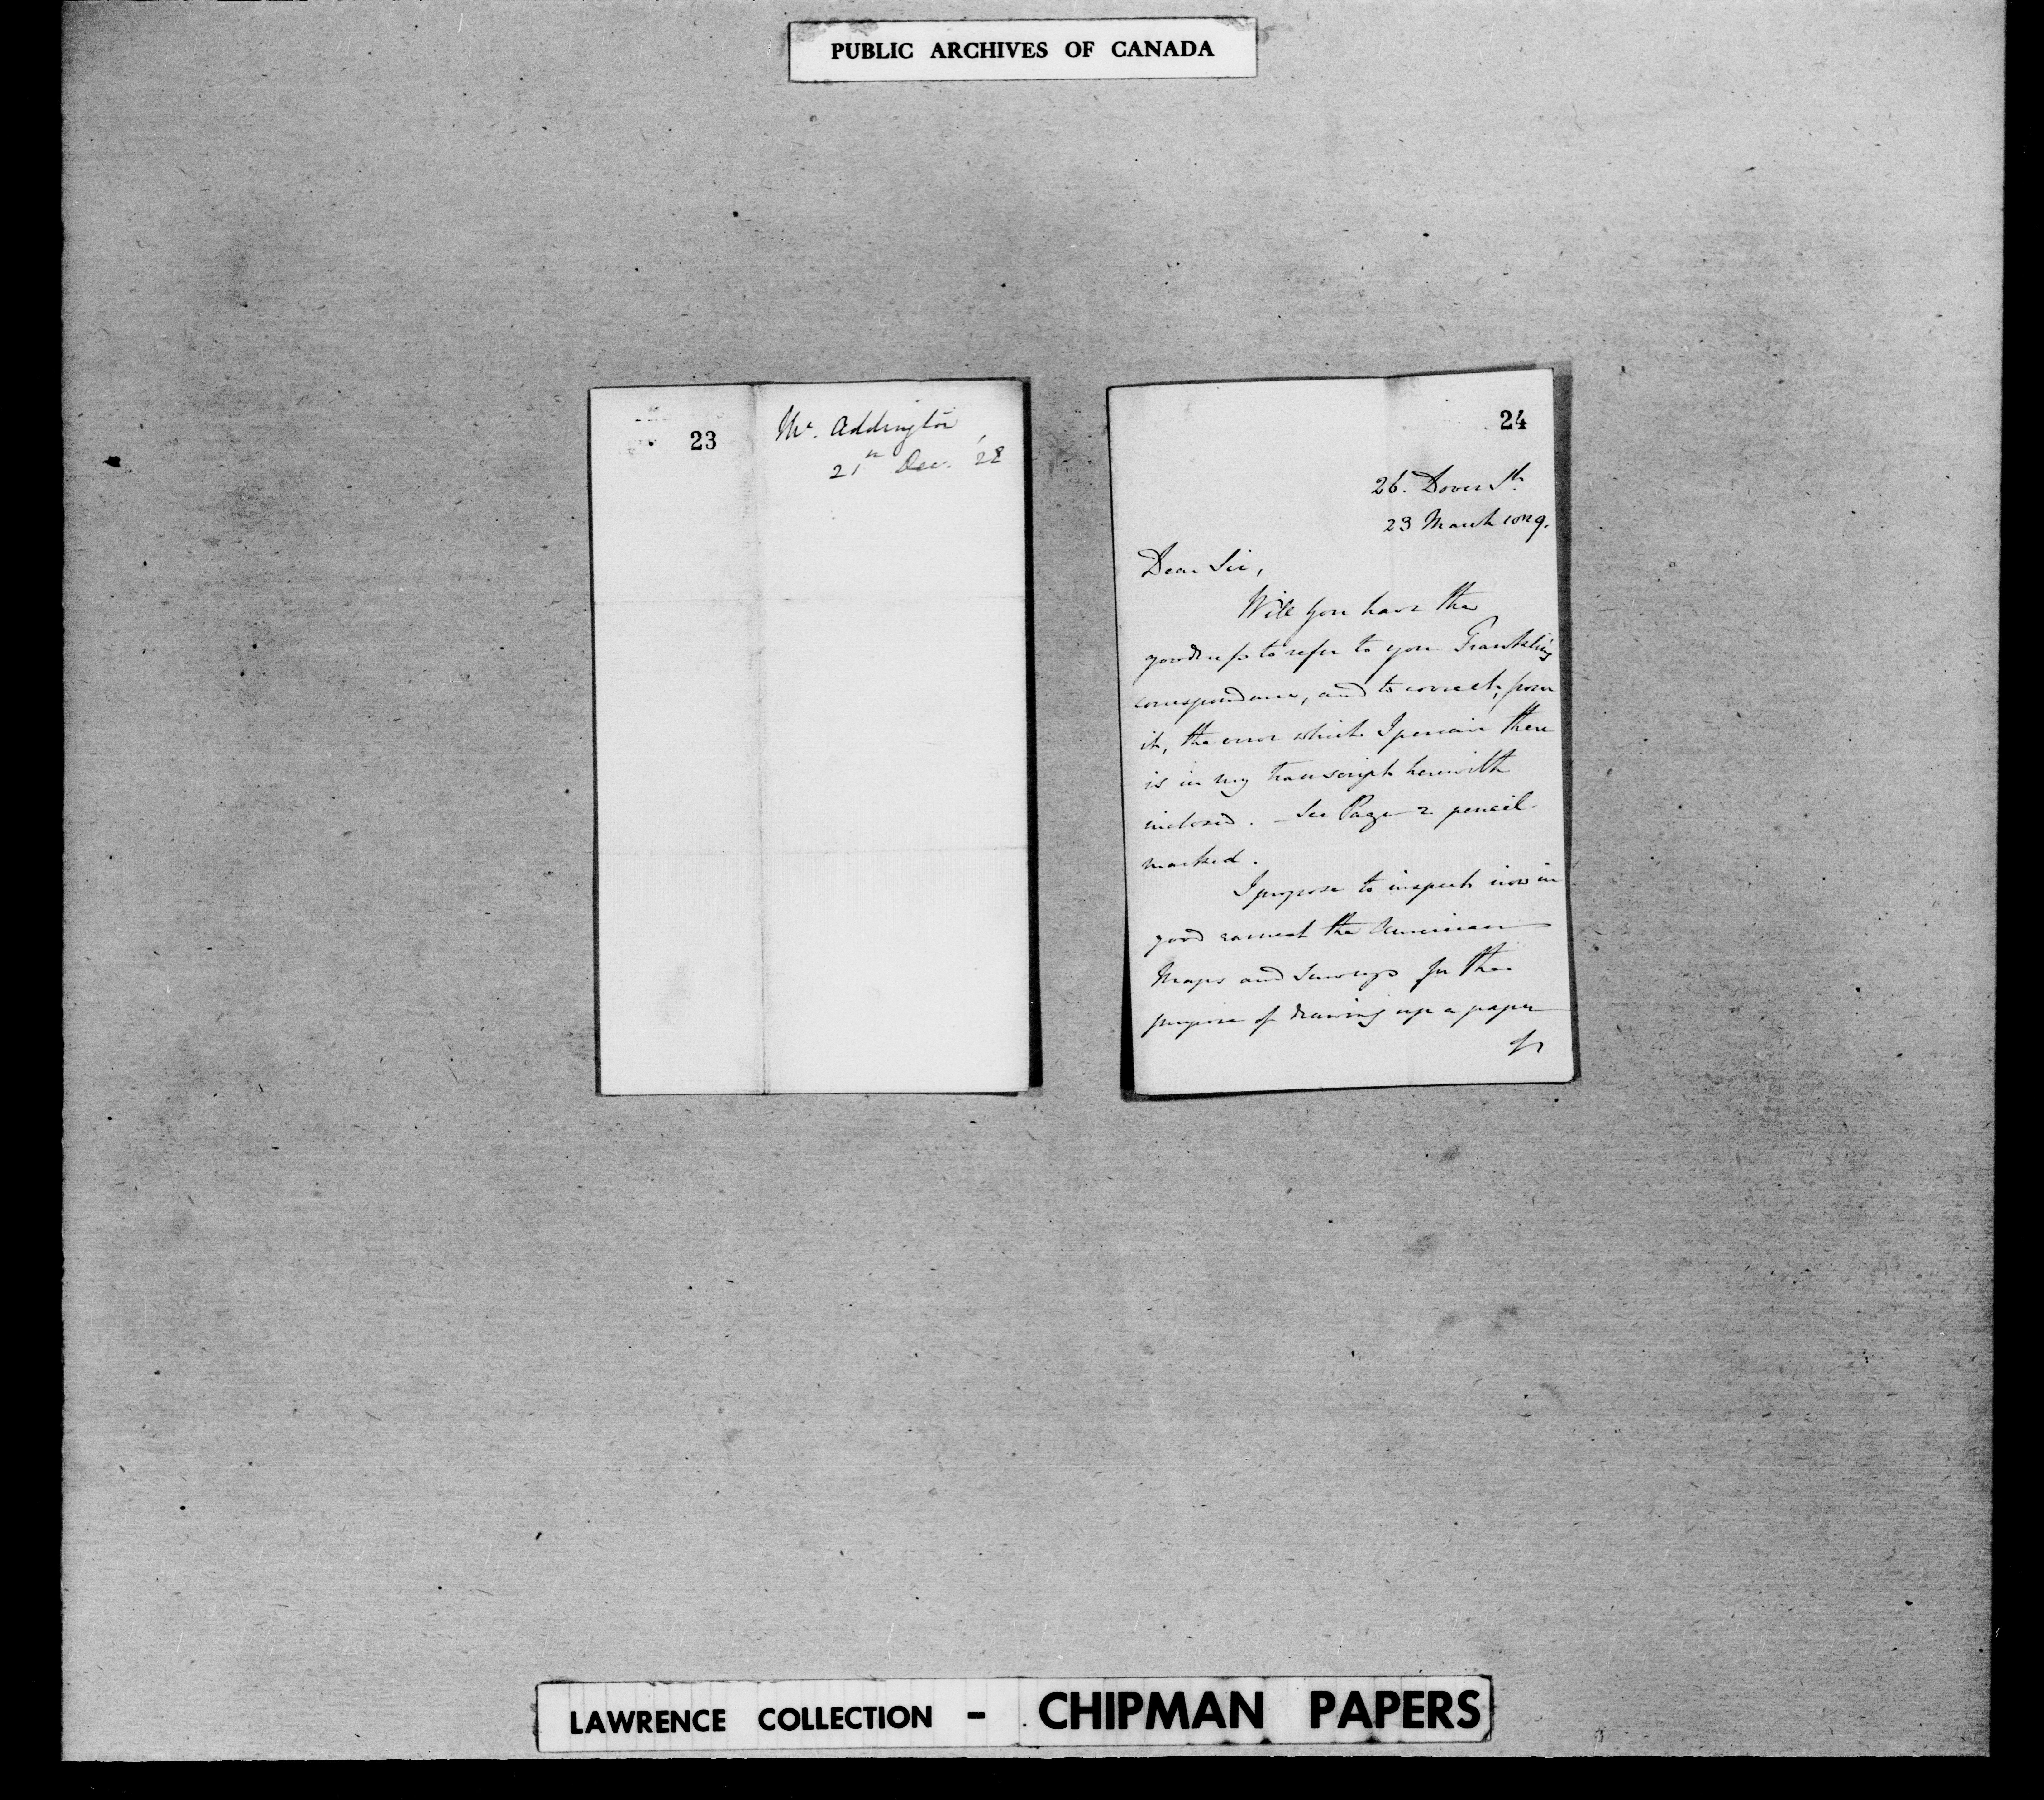 PUBLIC ARCHIVES OF CANADA
23
Mr. Addington
21st Dec. '28
24
26. Dover St.
23 March 1829.
Dear Sir,
Will you have the
goodness to refer to your Franklin's
correspondence, and to correct, from
it, the error which I perceive there
is in my transcript herewith
inclosed. - See Page 2 pencil-
marked.
I propose to inspect now in
good earnest the American
Maps and Surveys for the
purpose of drawing up a paper
LAWRENCE COLLECTION - CHIPMAN PAPERS